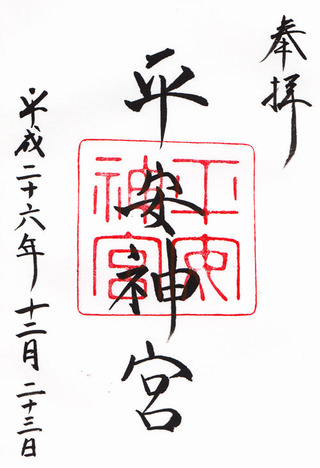 奉拝
平安神宮
平安神宮
平成二十六年十二月二十三日